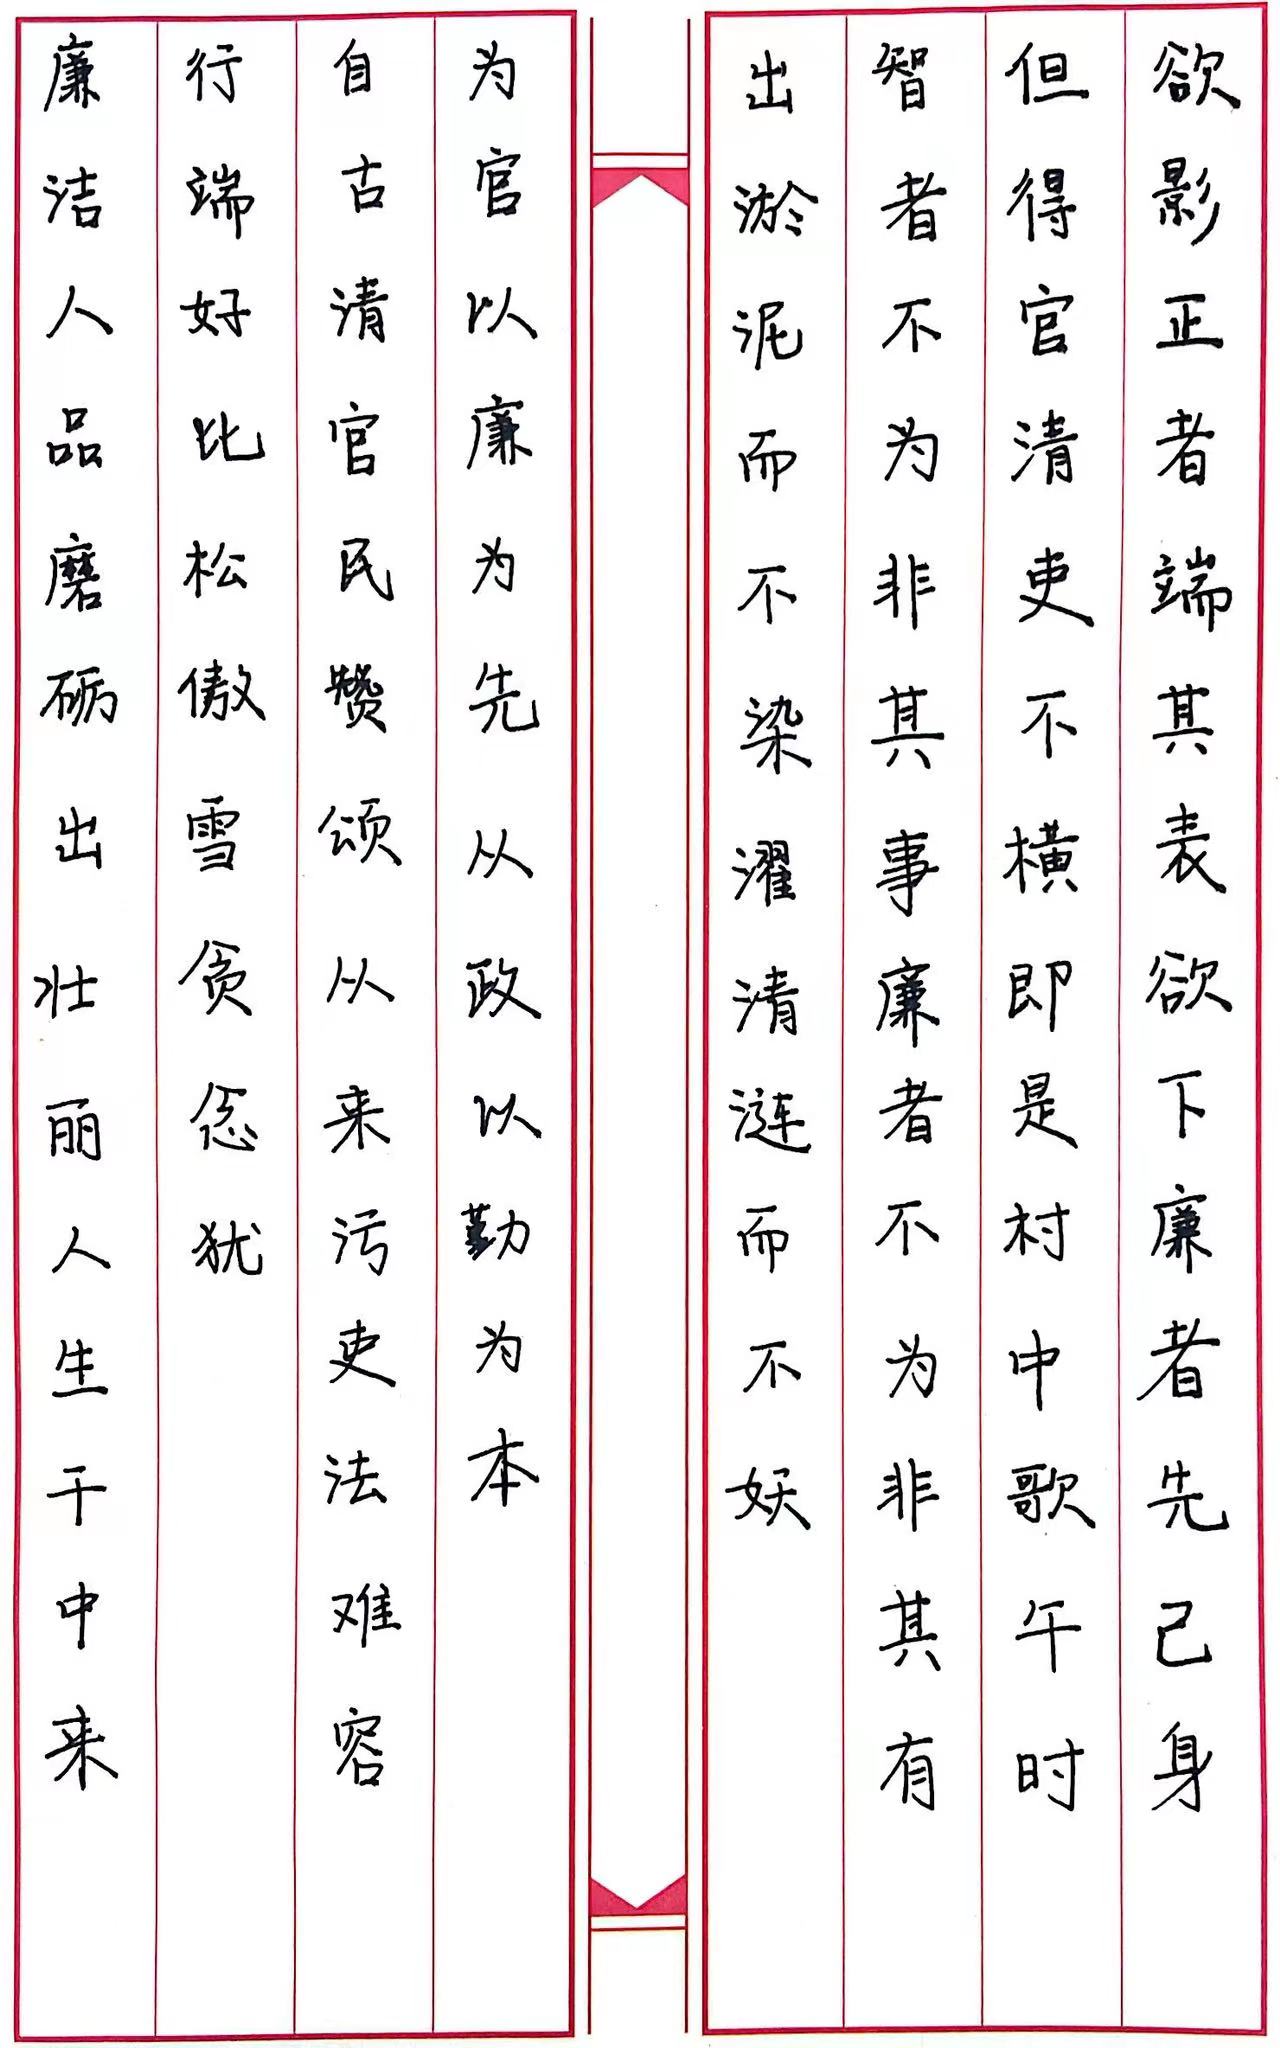 欲影正者端其表欲下廉者先己身
但得官清吏不横即是村中歌午时
智者不为非其事廉者不为非其有
出淤泥而不染濯清涟而不妖
为官以廉为先从政以勤为本
自古清官民赞颂从来污吏法难容
行端好比松傲雪贪念犹
廉洁人品磨砺出壮丽人生干中来